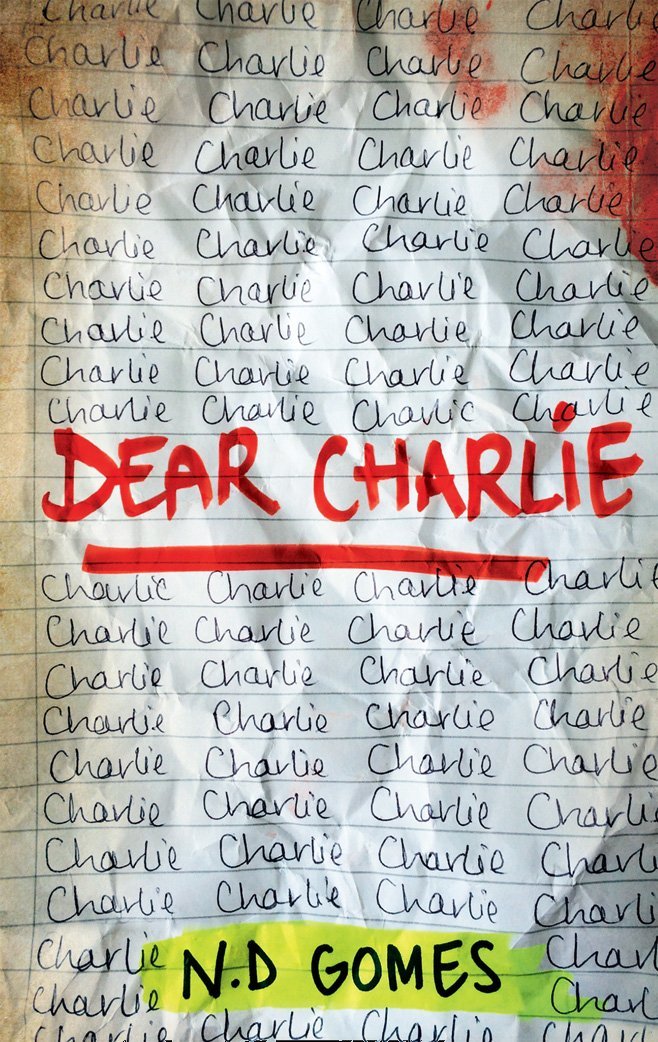 Charlie Charlie Charlie Charli
Charlie Charlie Charlie Charlie
Charlie Charlie Charlie Charlie
Charlie Charlie Charlie Charlie
Charlie Charlie Charlie Charlie
Charlie Charlie Charlie Charlie
Charlie Charlie Charlie Charlie
Charlie Charlie Charlie Charlie
Charlie Charlie Charlie Charlie
Charlie Charlie Charlie Charlie
DEAR CHARLiE
Charlie Charlie Charlie Charlie
Charlie Charlie Charlie Charlie
Charlie Charlie Charlie Charlie
Charlie Charlie Charlie Charlie
Charlie Charlie Charlie Charlie
Charlie Charlie Charlie Charli
Charlie Charlie Charlie Charl
Charlie Charlie Charlie Charli
Charlie Charl
N.D GOMES
Charlie Charl
Charlie Charlie